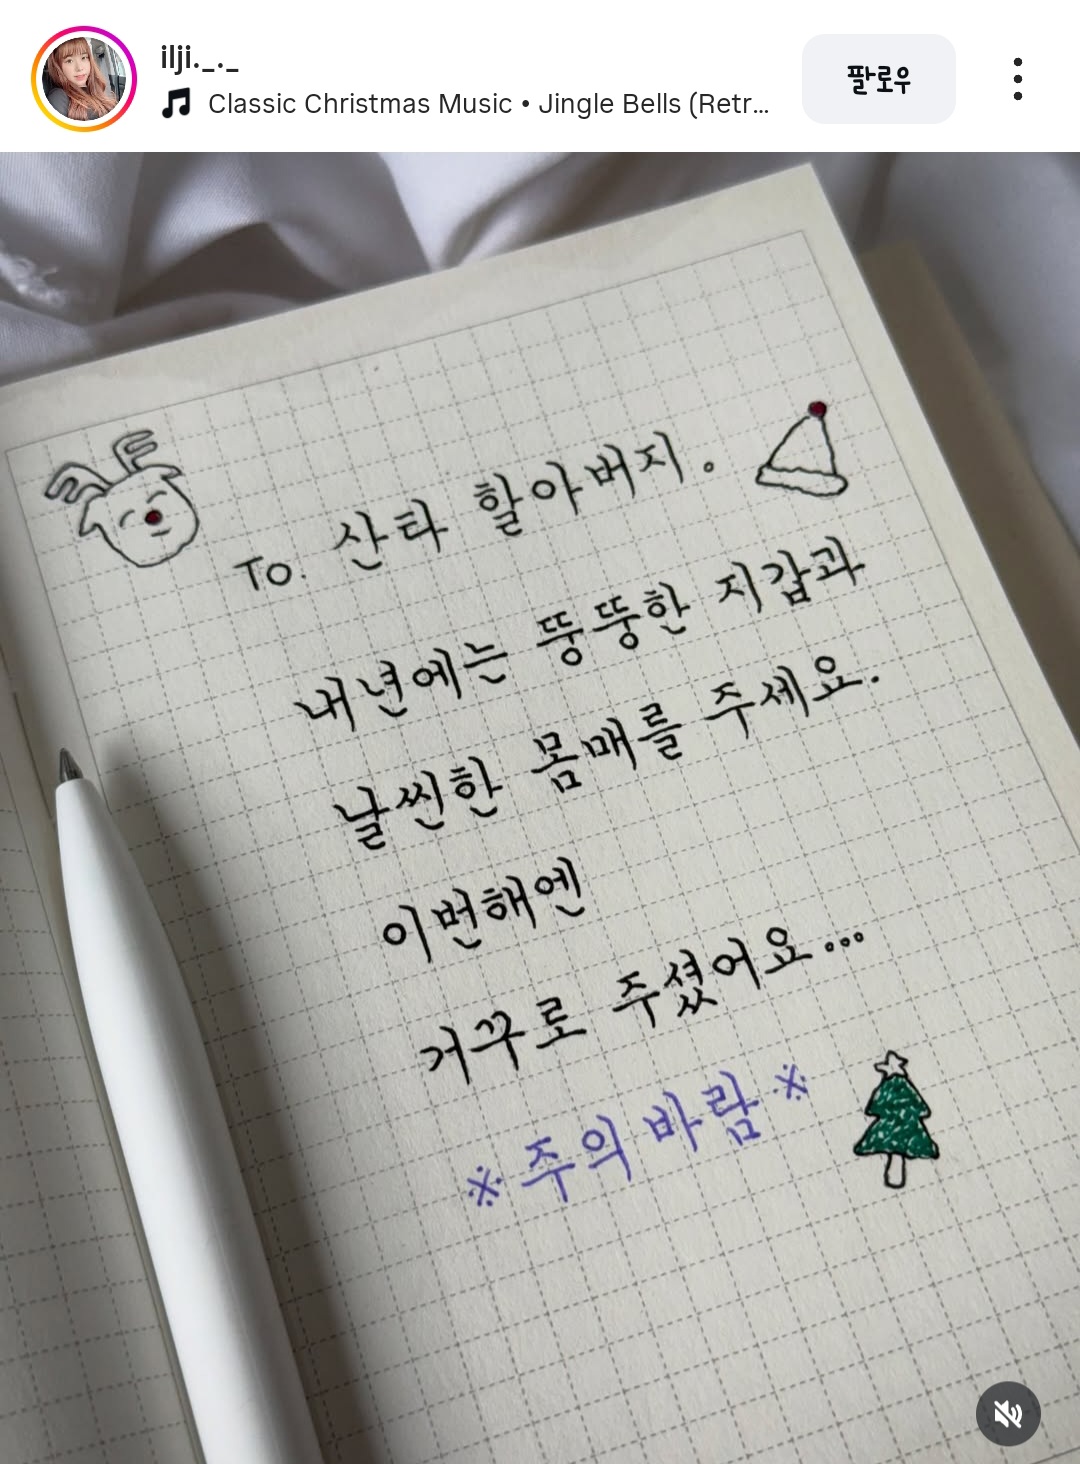 ilji._._
Classic Christmas Music • Jingle Bells (Retr...
팔로우
To. 산타 할아버지.
내년에는 뚱뚱한 지갑과
날씬한 몸매를 주세요.
이번해엔
거꾸로 주셨어요...
※ 주의 바람 ※